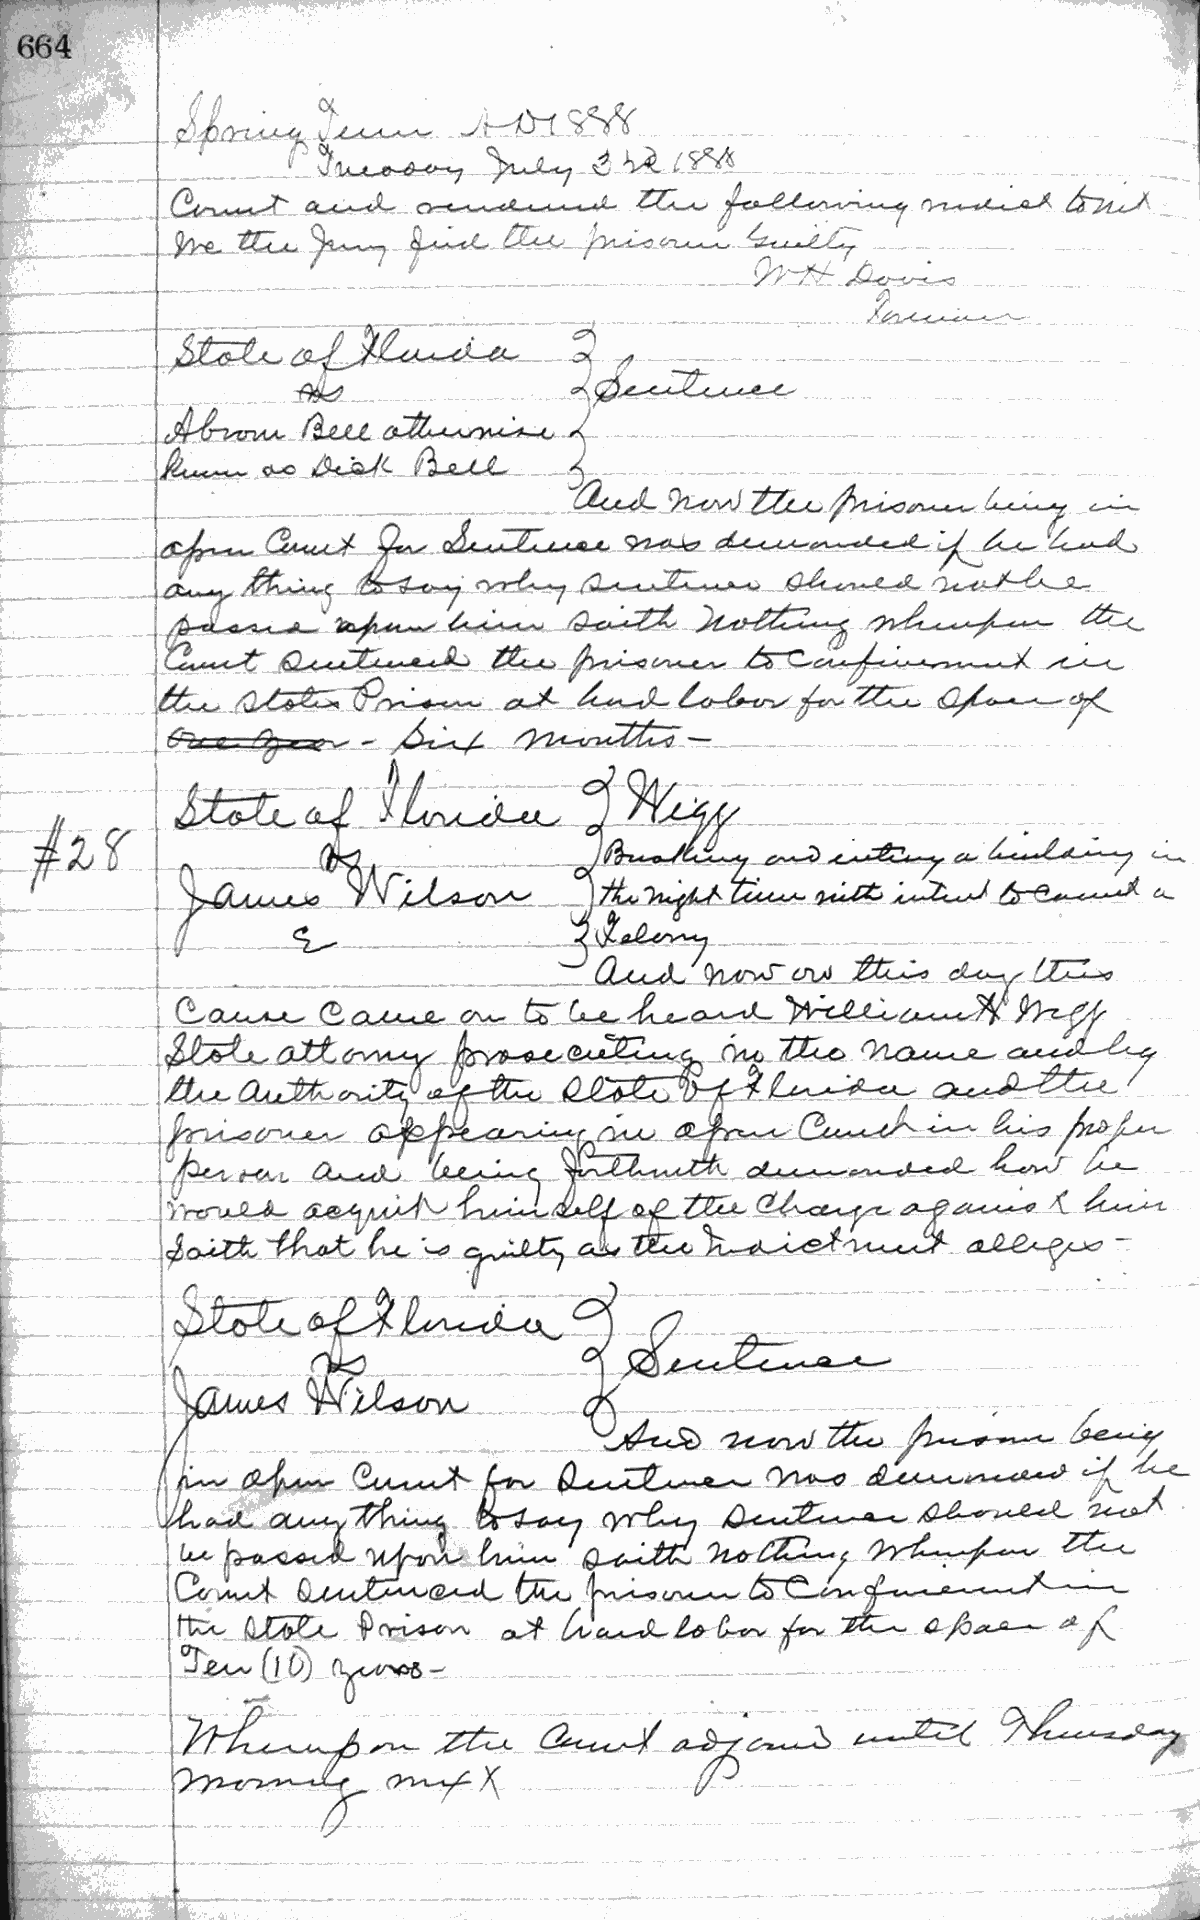 664
Spring Term A D 1888
Tuesday July 3rd 1888
Court and rendered the following verdict to wit
We the Jury find the prisoner Guilty
W H Davis
Foreman
State of Florida
vs
Sentence
Abrom Bell otherwise
known as Dick Bell
And now the prisoner being in
open Court for Sentence was demanded if he had
any thing to say why sentence should not be
passed upon him saith Nothing whereupon the
Court sentenced the prisoner to confinement in
the States Prison at hard labor for the space of
one year - Six months -
State of Florida
Wigg
#28
vs
Breaking and entering a building in
James Wilson
the night time with intent to commit a
Felony
And now on this day this
Cause Came on to be heard William H Wigg
State attorny prosecuting in the name and by
the Authority of the State of Florida and the
prisoner appearing in open Court in his proper
person and being forthwith demanded how he
would acquit himself of the Charge against him
Saith that he is guilty as the Indictment alleges -
State of Florida
vs
Sentence
James Wilson
And now the prisoner being
in open Court for Sentence was demanded if he
had any thing to say why Sentence should not
be passed upon him saith nothing Whereupon the
Court Sentenced the prisoner to Confinement in
the State Prison at hard labor for the space of
Ten (10) years -
Whereupon the Court adjourned until Thursday
morning next